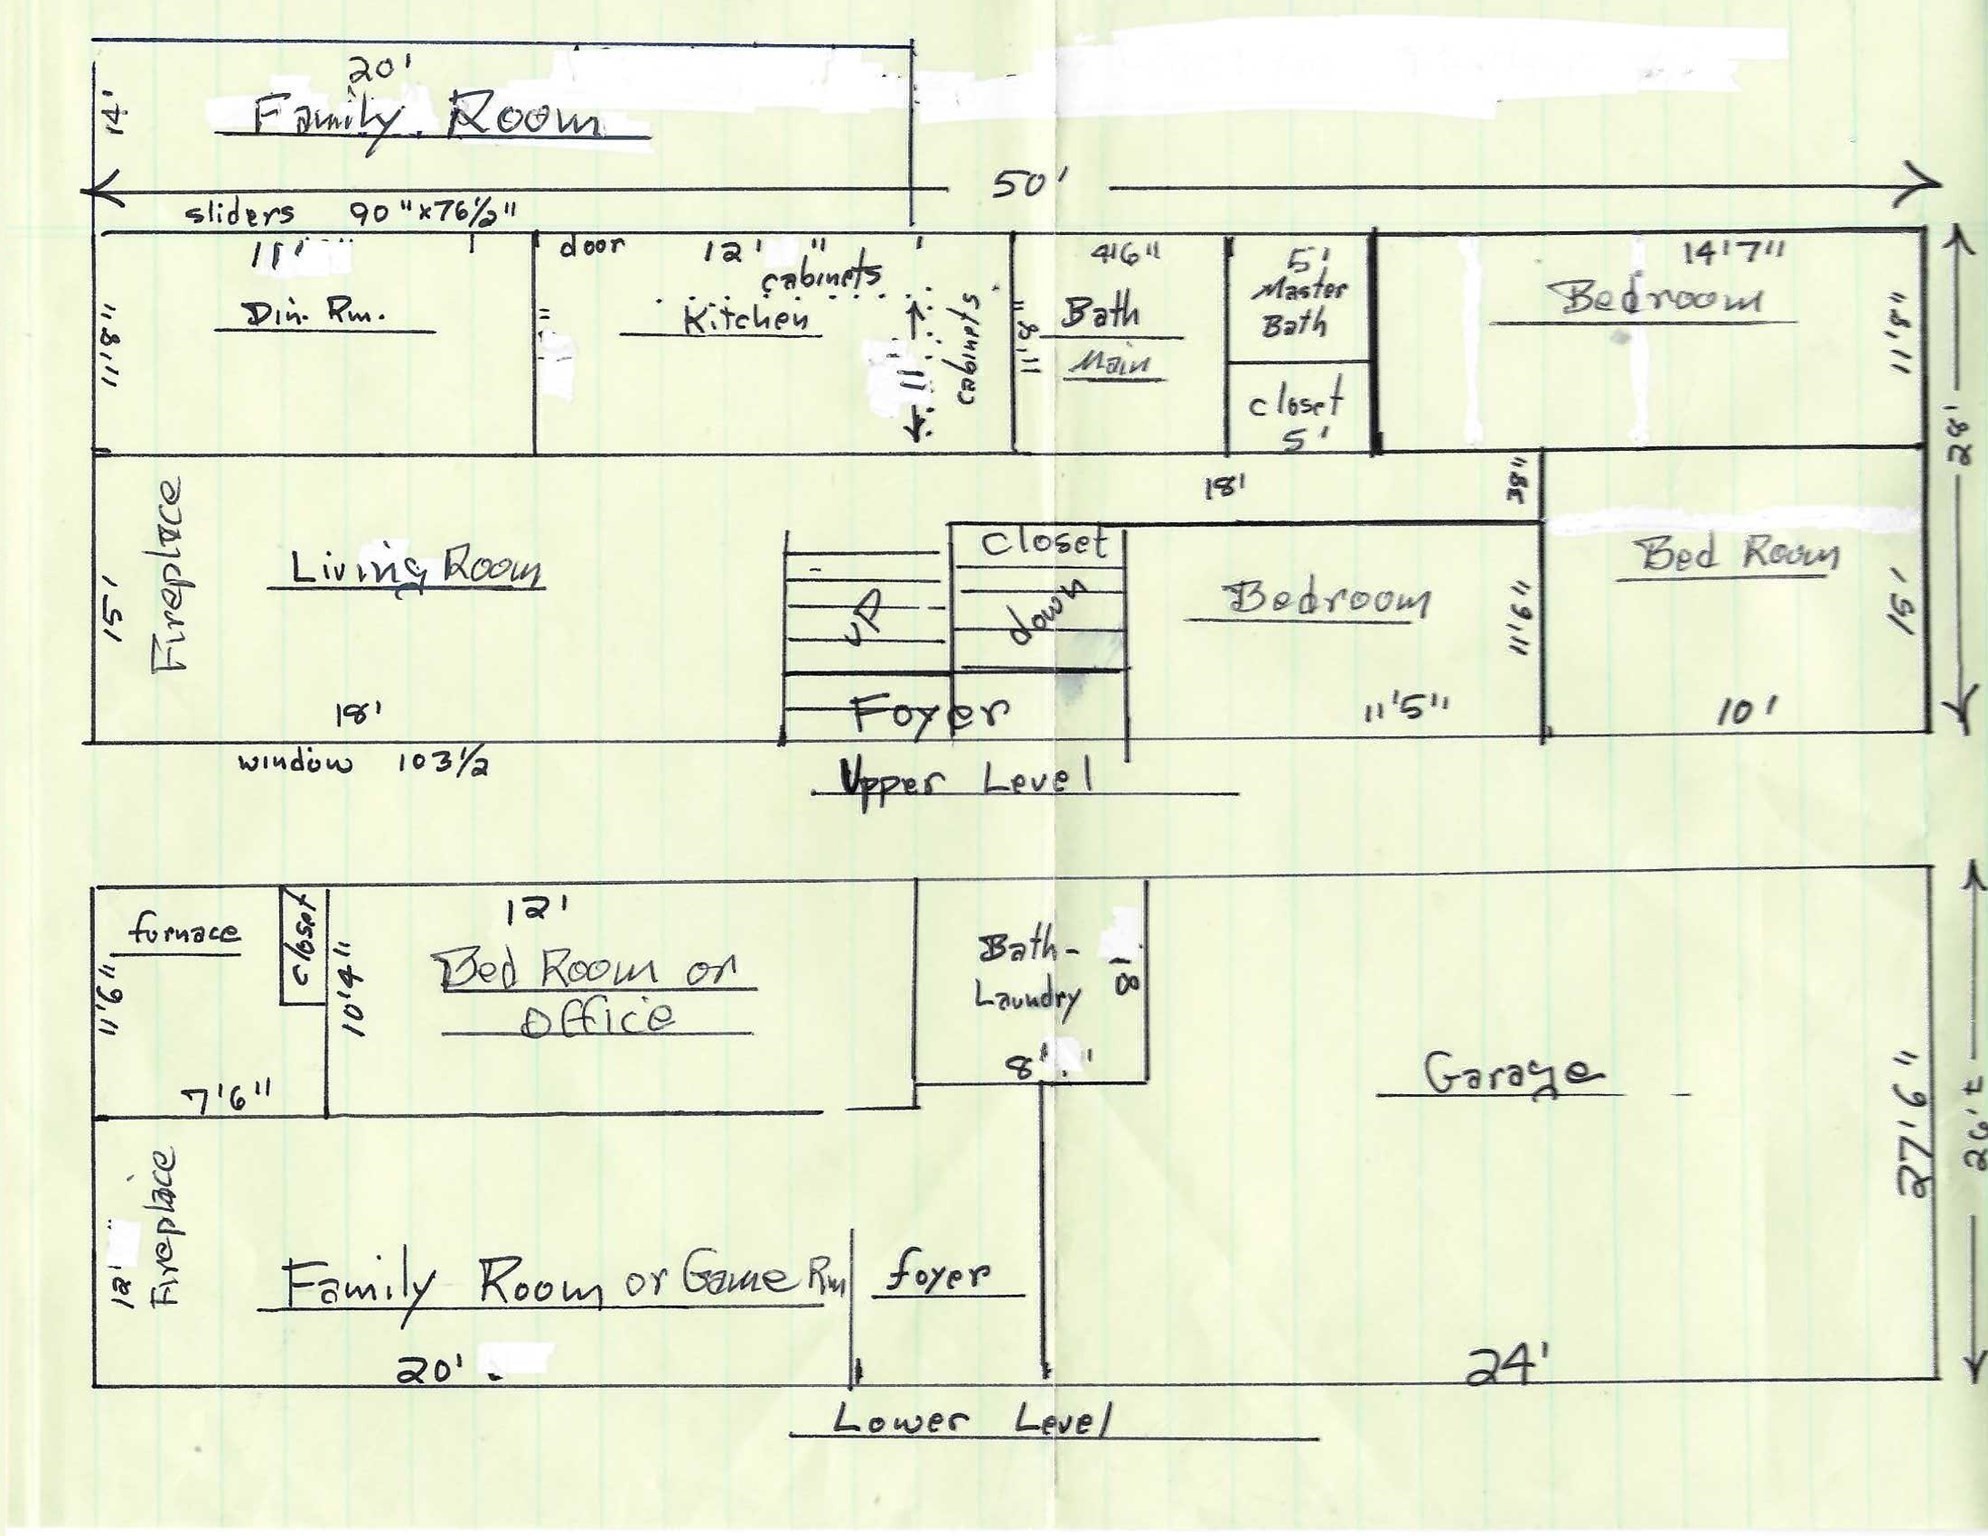 20'
14'
Family Room
50'
sliders 90"x76½"
11' "
door
12' "
cabinets
4'6"
5'
Master
Bath
14'7"
Bedroom
Din. Rm.
Kitchen
cabinets
Bath
Main
11'8"
11'
11'8"
11'8"
closet
5'
28'
18'
38"
Fireplace
closet
Living Room
up
down
Bedroom
Bed Room
15'
11'9"
15'
18'
Foyer
11'5"
10'
window 103½
Upper Level
furnace
closet
12'
Bed Room or
office
11'6"
10'4"
Bath-
Laundry
8'
8' "
7'6"
Garage
27'6"
26'±
Fireplace
12'
Family Room or Game Rm
foyer
20'
24'
Lower Level